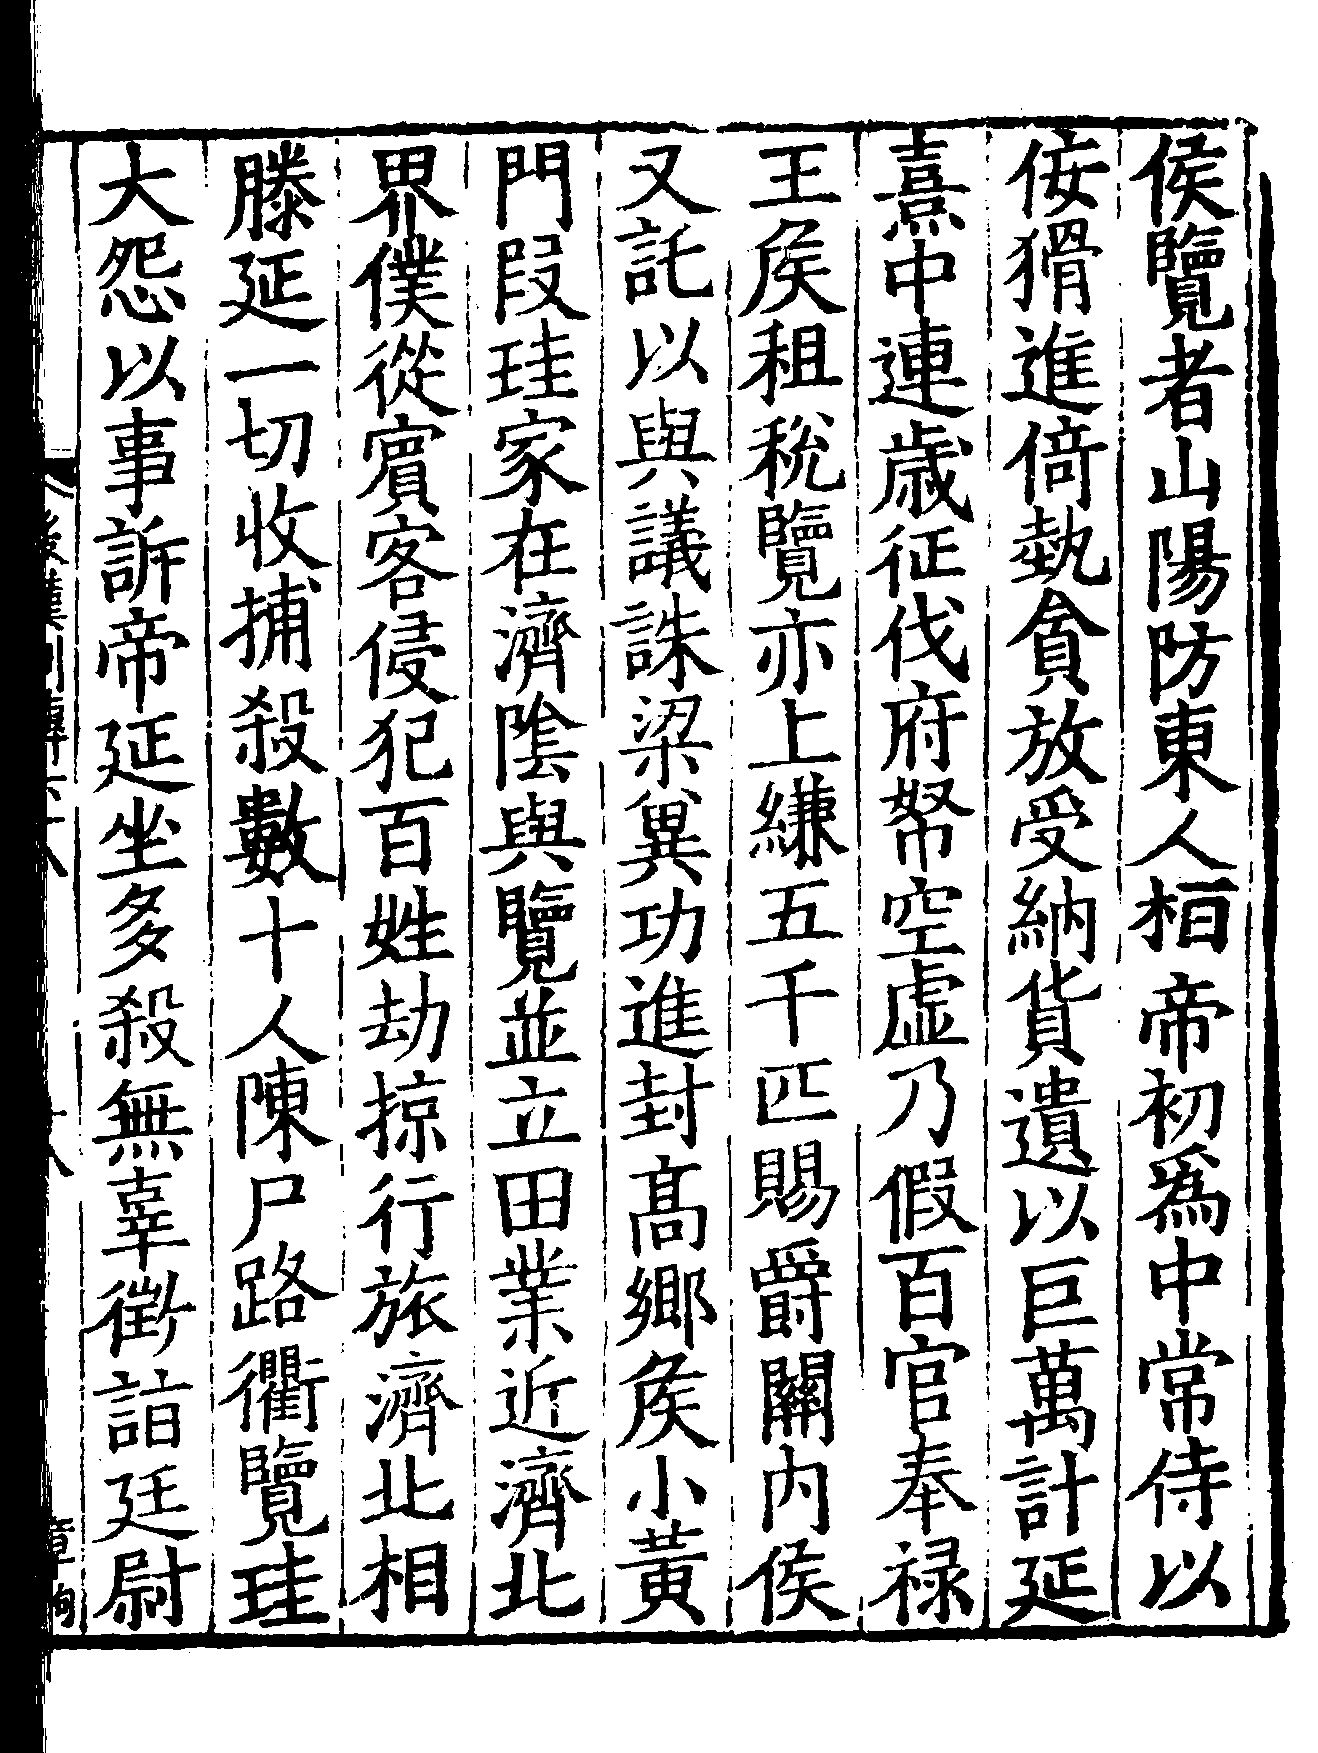 侯覽者山陽防東人桓帝初爲中常侍以
佞猾進倚埶貪放受納貨遺以巨萬計延
熹中連歲征伐府帑空虛乃假百官奉祿
王侯租稅覽亦上縑五千匹賜爵關內侯
又託以與議誅梁冀功進封高鄉侯小黃
門段珪家在濟陰與覽並立田業近濟北
界僕從賓客侵犯百姓劫掠行旅濟北相
滕延一切收捕殺數十人陳尸路衢覽珪
大怨以事訴帝延坐多殺無辜徵詣廷尉